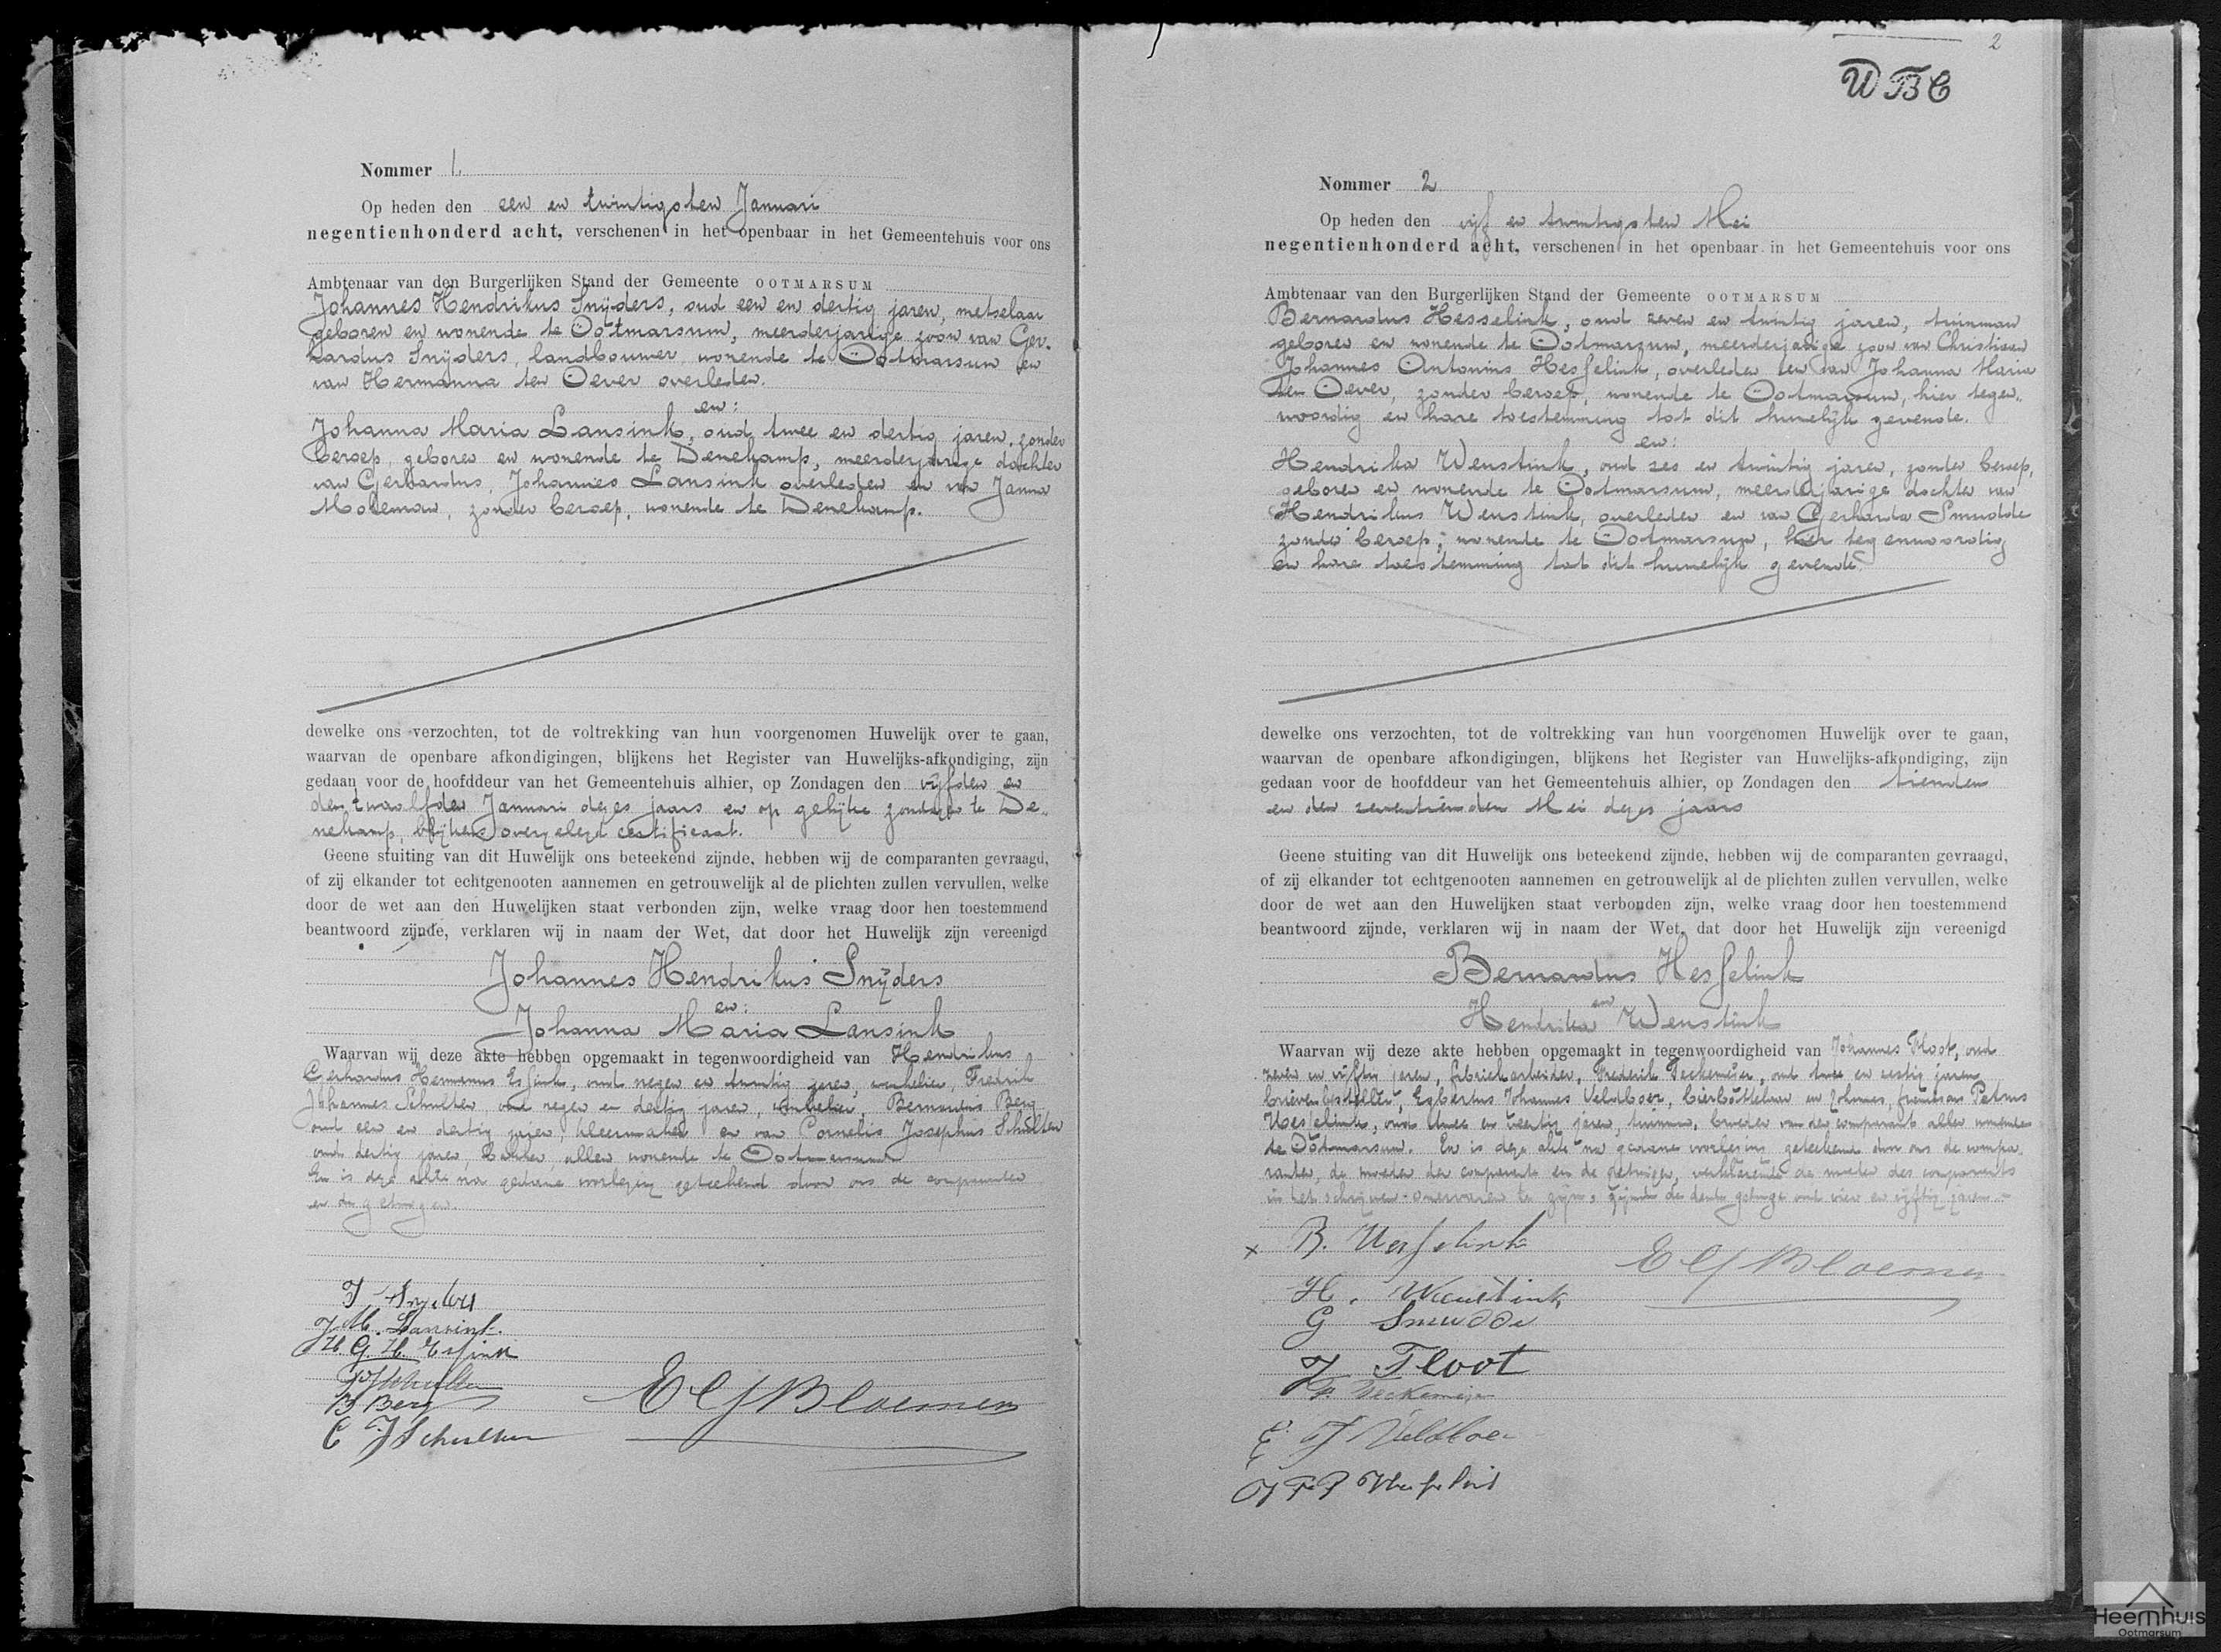 Nommer 1.
Op heden den een en twintigsten Januari
negentienhonderd acht, verschenen in het openbaar in het Gemeentehuis voor ons
Ambtenaar van den Burgerlijken Stand der Gemeente OOTMARSUM
Johannes Hendrikus Snijders, oud een en dertig jaren, metselaar
geboren en wonende te Ootmarsum, meerderjarige zoon van Ger-
hardus Snijders, landbouwer, wonende te Ootmarsum en
van Hermanna ten Oever overleden.
en:
Johanna Maria Lansink, oud twee en dertig jaren, zonder
beroep, geboren en wonende te Denekamp, meerderjarige dochter
van Gerhardus, Johannes Lansink overleden en van Janna
Moleman, zonder beroep, wonende te Denekamp.
dewelke ons verzochten, tot de voltrekking van hun voorgenomen Huwelijk over te gaan,
waarvan de openbare afkondigingen, blijkens het Register van Huwelijks-afkondiging, zijn
gedaan voor de hoofddeur van het Gemeentehuis alhier, op Zondagen den vijfden en
den twaalfden Januari dezes jaars en op gelijke zondagen te De-
nekamp, blijkens overgelegd certificaat.
Geene stuiting van dit Huwelijk ons beteekend zijnde, hebben wij de comparanten gevraagd,
of zij elkander tot echtgenooten aannemen en getrouwelijk al de plichten zullen vervullen, welke
door de wet aan den Huwelijken staat verbonden zijn, welke vraag door hen toestemmend
beantwoord zijnde, verklaren wij in naam der Wet, dat door het Huwelijk zijn vereenigd
Johannes Hendrikus Snijders
en:
Johanna Maria Lansink
Waarvan wij deze akte hebben opgemaakt in tegenwoordigheid van Hendrikus
Gerhardus Hermannus Essink, oud negen en twintig jaren, winkelier, Fredrik
Johannes Schulten, oud negen en dertig jaren, winkelier, Bernardus Berg
oud een en dertig jaren, kleermaker en van Cornelis Josephus Schulten
oud dertig jaren, bakker, allen wonende te Ootmarsum
En is deze akte na gedane voorlezing geteekend door ons de comparanten
en de getuigen.
J Snyders
J. M. Lansink.
H. G. H. Essink
F J Schulten
B Berg
C J Schulten
E C J Bloemen
2
WBC
Nommer 2
Op heden den vijf en twintigsten Mei
negentienhonderd acht, verschenen in het openbaar in het Gemeentehuis voor ons
Ambtenaar van den Burgerlijken Stand der Gemeente OOTMARSUM
Bernardus Hesselink, oud zeven en twintig jaren, tuinman
geboren en wonende te Ootmarsum, meerderjarige zoon van Christiaan
Johannes Antonius Hesselink, overleden en van Johanna Maria
ten Oever, zonder beroep, wonende te Ootmarsum, hier tegen-
woordig en hare toestemming tot dit huwelijk gevende.
en:
Hendrika Wenstink, oud zes en twintig jaren, zonder beroep,
geboren en wonende te Ootmarsum, meerderjarige dochter van
Hendrikus Wenstink, overleden en van Gerharda Smudde
zonder beroep, wonende te Ootmarsum, hier tegenwoordig
en hare toestemming tot dit huwelijk gevende.
dewelke ons verzochten, tot de voltrekking van hun voorgenomen Huwelijk over te gaan,
waarvan de openbare afkondigingen, blijkens het Register van Huwelijks-afkondiging, zijn
gedaan voor de hoofddeur van het Gemeentehuis alhier, op Zondagen den tienden
en den zeventienden Mei dezes jaars
Geene stuiting van dit Huwelijk ons beteekend zijnde, hebben wij de comparanten gevraagd,
of zij elkander tot echtgenooten aannemen en getrouwelijk al de plichten zullen vervullen, welke
door de wet aan den Huwelijken staat verbonden zijn, welke vraag door hen toestemmend
beantwoord zijnde, verklaren wij in naam der Wet, dat door het Huwelijk zijn vereenigd
Bernardus Hesselink
en
Hendrika Wenstink
Waarvan wij deze akte hebben opgemaakt in tegenwoordigheid van Johannes Floot, oud
zeven en vijftig jaren, fabriekarbeider, Frederik Deckemeijer, oud twee en zestig jaren
brievenbesteller, Egbertus Johannes Veldboer, bierbottelaar en Johannes, Franciscus Petrus
Hesselink, oud twee en veertig jaren, tuinman, broeder van den comparant allen wonende
te Ootmarsum. En is deze akte na gedane voorlezing geteekend door ons de compa-
ranten, de moeder der comparante en de getuigen, verklarende de moeder des comparants
in het schrijven onervaren te zijn, zijnde de derde getuige oud vier en vijftig jaren.
x B. Hesselink
H. Wenstink
G Smudde
J Floot
F. Deckemeijer
E J Veldboer
J F P Hesselink
E C J Bloemen
Heemhuis
Ootmarsum